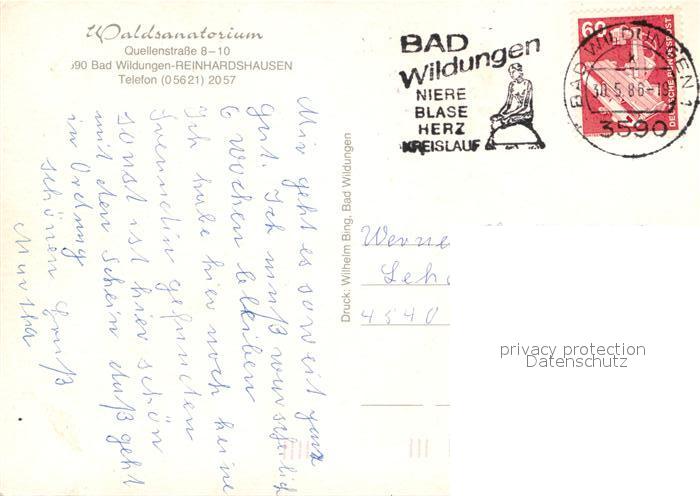 Waldsanatorium
Quellenstraße 8–10
590 Bad Wildungen-REINHARDSHAUSEN
Telefon (05621) 2057
BAD
Wildungen
NIERE
BLASE
HERZ
KREISLAUF
60
DEUTSCHE BUNDESPOST
BAD WILDUNGEN 1
30.5.86-19
3590
Mir geht es soweit ganz
gut. Ich muß warscheinlich
6 wochen bleiben
Ich habe hier noch keine
Freundin gefunden
sonst ist hier schön
mit den Schein daß geht
in Ordnung
schönen Gruß
Martha
Druck: Wilhelm Bing, Bad Wildungen
Werne
Leh
4540
privacy protection
Datenschutz